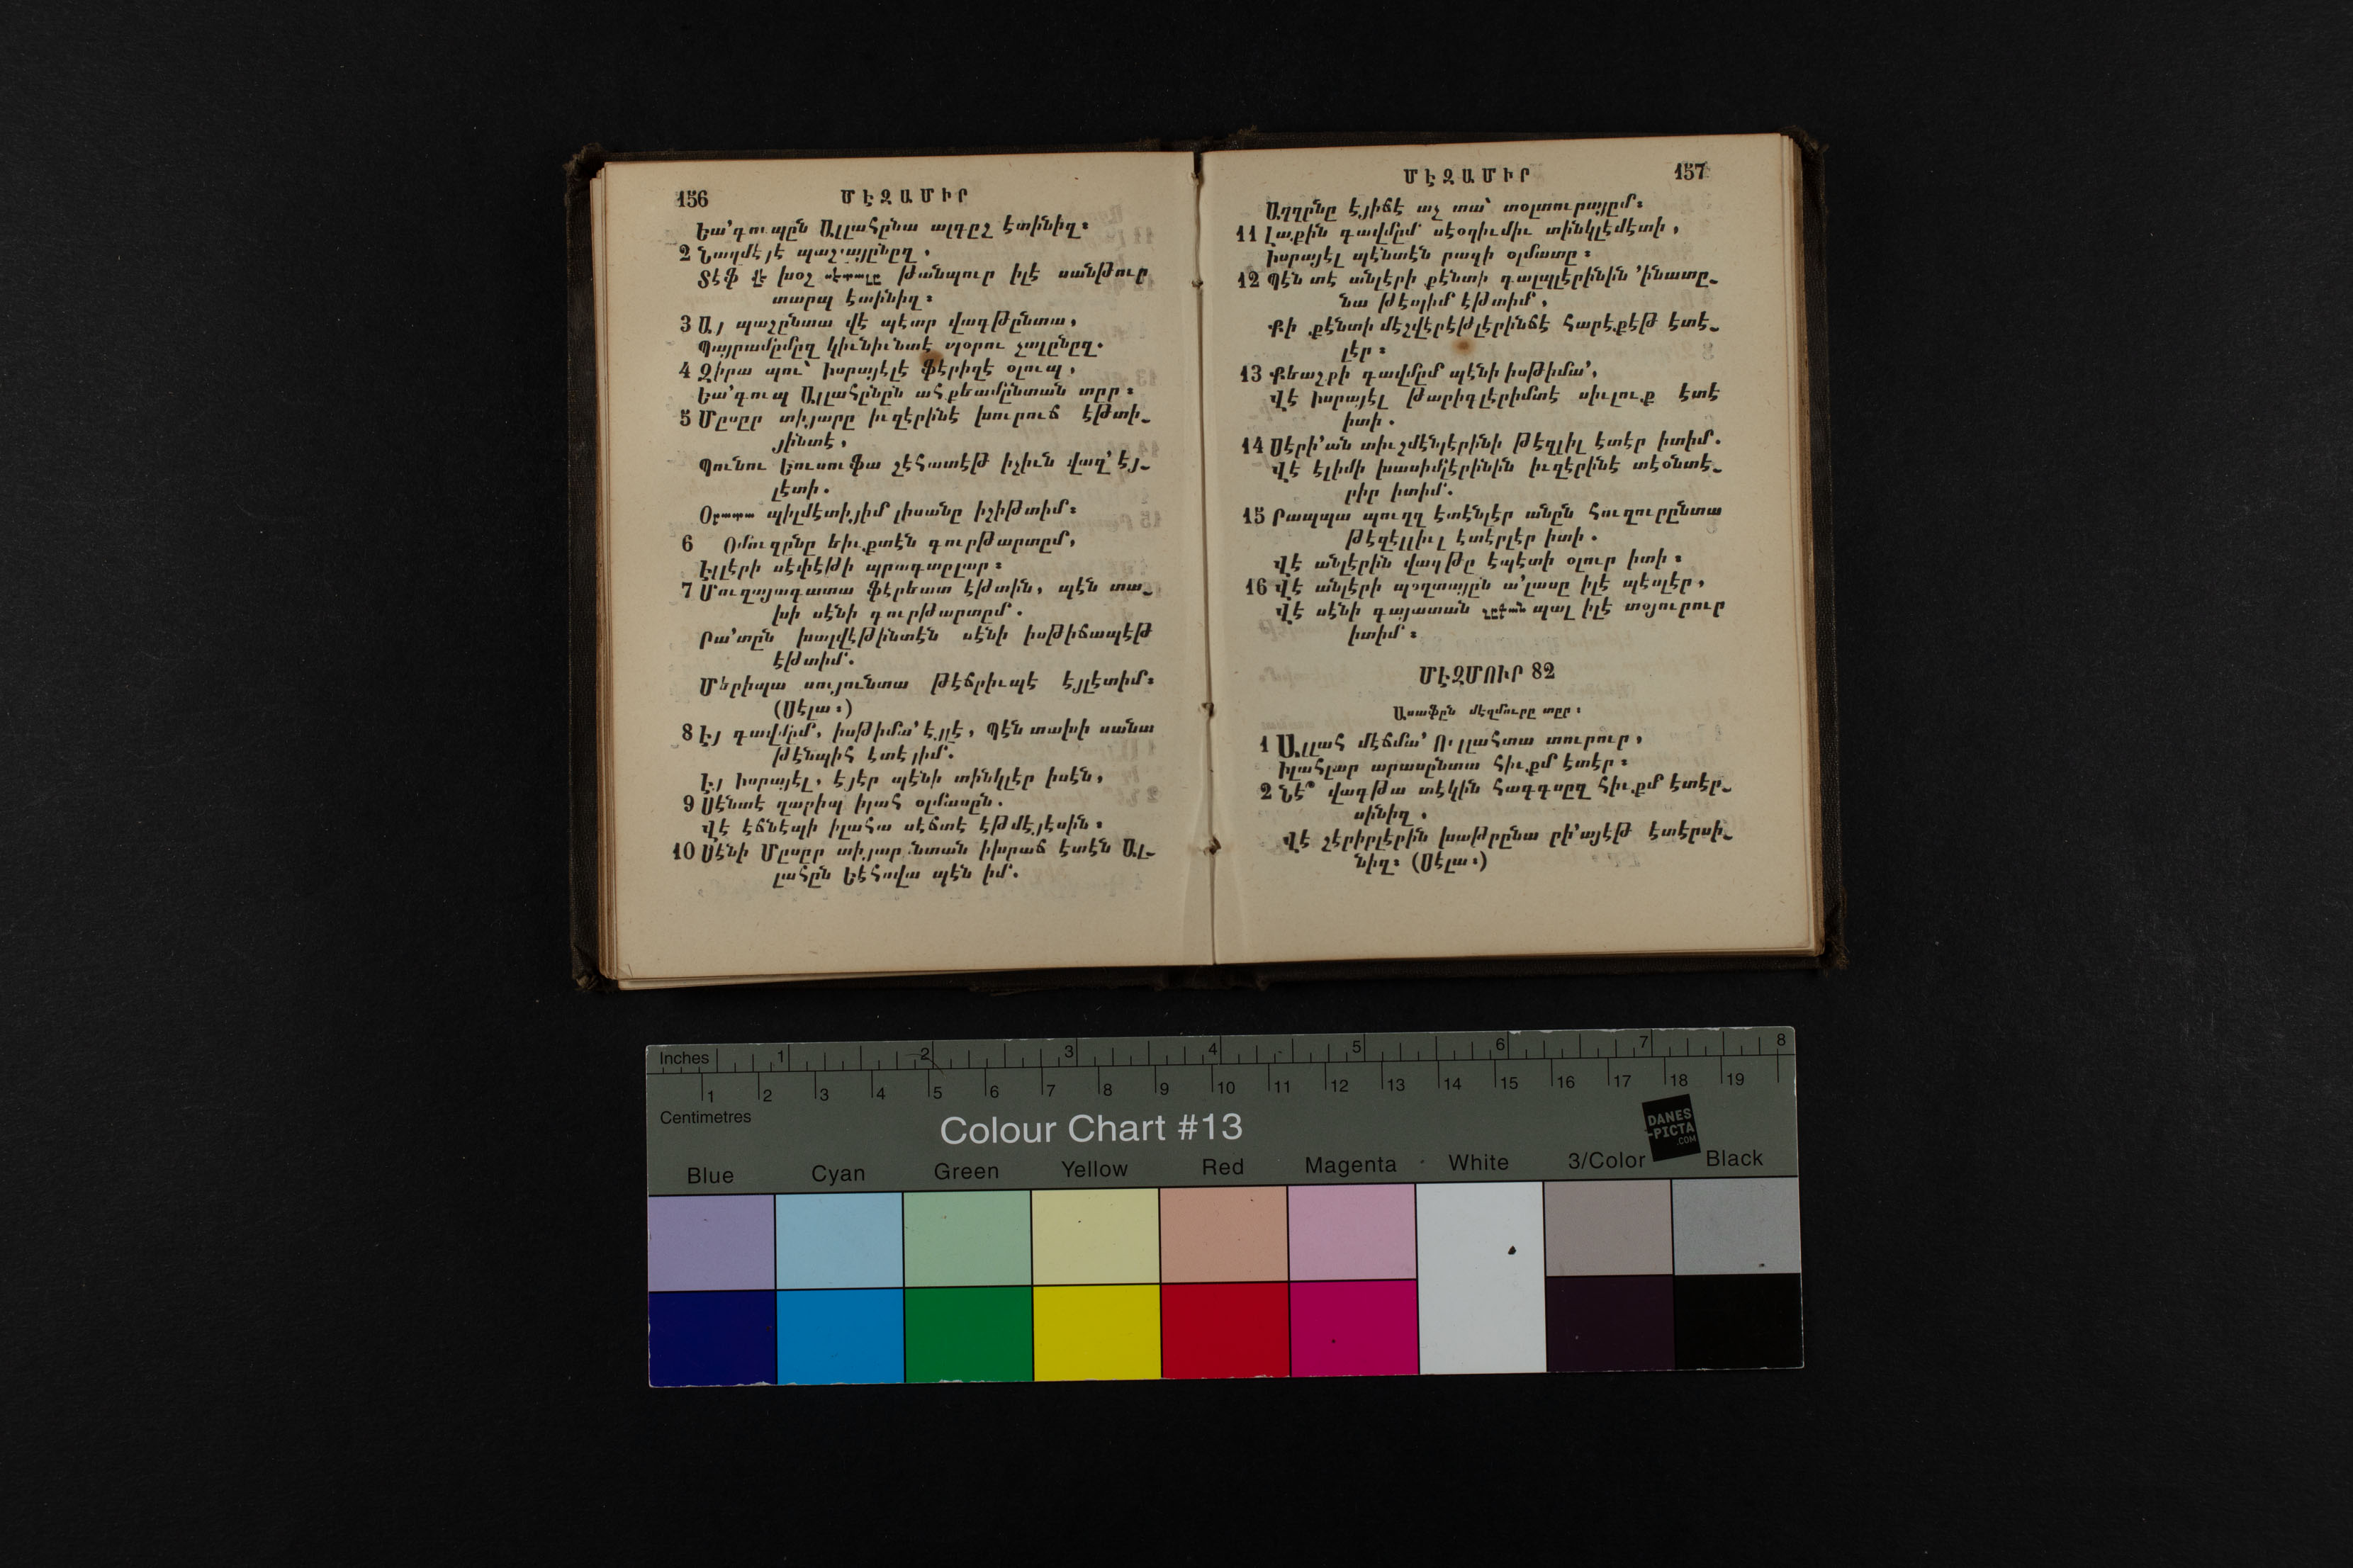 156 ՄԷԶԱՄԻՐ
Եա՛գուպըն Ալլահընա ալգըշ էտինիզ։
2 Նաղմէյէ պաշլայընըզ,
Տէֆ վէ խօշ սէտալը թանպուր իլէ սանթուր
տարպ էտինիզ։
3 Այ պաշընտա վէ պէտր վագթընտա,
Պայրամըմըզ կիւնիւնտէ պօրու չալընըզ.
4 Զիրա պու՝ Իսրայէլէ ֆէրիզէ օլուպ,
Եա՛գուպ Ալլահընըն ահքեամընտան տըր։
5 Մըսըր տիյարը իւզէրինէ խուրուճ էթտի֊
յինտէ,
Պունու Եուսուֆա շէհատէթ իչիւն վազ՛ էյ֊
լէտի.
Օրատա պիլմէտիյիմ լիսանը իշիթտիմ։
6 Օմուզընը եիւքտէն գուրթարտըմ,
Էլլէրի սէփէթի պրագտըլար։
7 Մուզայագատա ֆէրեատ էթտին, պէն տա֊
խի սէնի գուրթարտըմ.
Րա՛տըն խալվէթինտէն սէնի իսթիճապէթ
էթտիմ.
Մերիպա սույունտա թէճրիւպէ էյլէտիմ։
(Սէլա։)
8 Էյ գավմըմ, իսթիմա՛ էյլէ, Պէն տախի սանա
թէնպիհ էտէյիմ.
Էյ Իսրայէլ, էյէր պէնի տինկլէր իսէն,
9 Սէնտէ ղարիպ իլահ օլմասըն.
Վէ էճնէպի իլահա սէճտէ էթմէյէսին։
10 Սէնի Մըսըր տիյարընտան իխրաճ էտէն Ալ֊
լահըն Եէհովա պէն իմ.
ՄԷԶԱՄԻՐ 157
Աղզընը էյիճէ աչ տա՝ տօլտուրայըմ։
11 Լաքին գավմըմ սէօզիւմիւ տինկլէմէտի,
Իսրայէլ պէնտէն րազի օլմատը։
12 Պէն տէ անլէրի քէնտի գալպլէրինին ՛ինատը֊
նա թէսլիմ էթտիմ,
Քի քէնտի մէշվէրէթլէրինճէ հարէքէթ էտէ֊
լէր։
13 Քեաշքի գավմըմ պէնի իսթիմա՛,
Վէ Իսրայէլ թարիգլէրիմտէ սիւլուք էտէ
իտի.
14 Սէրի՛ան տիւշմէնլէրինի թէզլիլ էտէր իտիմ.
Վէ էլիմի խասիմլէրինին իւզէրինէ տէօնտէ֊
րիր իտիմ.
15 Րապպա պուղզ էտէնլէր անըն հուզուրընտա
թէզէլլիւլ էտէրլէր իտի.
Վէ անլէրին վագթը էպէտի օլուր իտի։
16 Վէ անլէրի պօղտայըն ա՛լասը իլէ պէսլէր,
Վէ սէնի գայատան չըքան պալ իլէ տօյուրուր
իտիմ։
ՄԷԶՄՈՒՐ 82
Ասաֆըն մէզմուրը տըր։
1 Ալլահ մէճմա՛ Ուլլահտա տուրուր,
Իլահլար արասընտա հիւքմ էտէր։
2 Նէ՞ վագթա տէկին հագգսըզ հիւքմ էտէր֊
սինիզ,
Վէ շէրիրլէրին խաթրընա րի՛այէթ էտէրսի֊
նիզ։ (Սէլա։)
Inches 1 2 3 4 5 6 7 8
1 2 3 4 5 6 7 8 9 10 11 12 13 14 15 16 17 18 19
Centimetres
Colour Chart #13
DANES
-PICTA
.COM
Blue Cyan Green Yellow Red Magenta White 3/Color Black